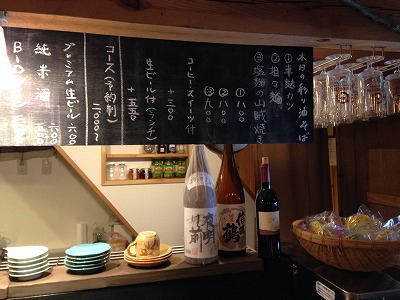 本日の彩り油そば
①車麩カツ
②担々麺
③塩麹の山賊焼き
①八〇〇
②八〇〇
③九〇〇
コーヒー・スイーツ付
+三〇〇
生ビール付(ランチ)
+五五〇
コース(予約制)
二〇〇〇〜
プレミアム生ビール 六〇〇
純米酒
夜明け前
鶴